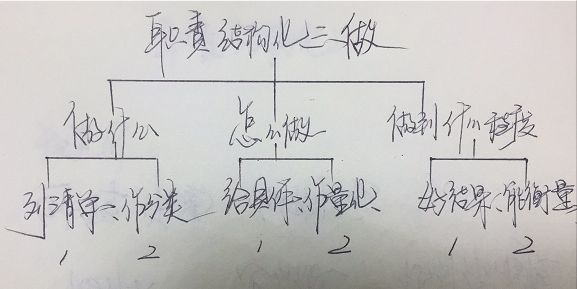 职责结构化之三做
做什么 怎么做 做到什么程度
列清单、作分类 给具体、作量化 好结果、能衡量
1 2 1 2 1 2